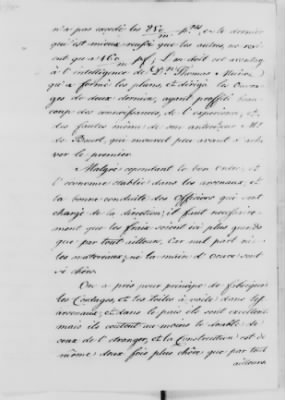 n'a pas excedé les 250 m. p.res, et le dernier
qui est mieux rusé que les autres, ne re
ient qu'a 160 m p.f; L'on doit cet avantag
à l'intelligence de D.n Thomas
qu'a formé les plans, et dirigé les Ouvra
ges de deux derniers, ayant proffité beau
coup des connoissances, de l'experience, et
des fautes même de son antecesseur M.r
de que mourut peu avant d'ache
ver le premier.
Malgré cependant le bon Ordre, et
l'economie etablie dans les arcenaux, et
la bonne conduite des Officiers qui sont
chargé de la direction; il faut necessaire
ment que les fraix soient ici plus grands
que par tout ailleurs, Car nul part ni
les materaux, ni la main d'Oeuvre sont
si chère.
On a pris pour principe de fabriquer
les Cordages, et les toiles à voile dans les
arcenaux, et dans le païs ils sont excellents
mais ils coutent au moins le double de
ceux de l'etranger, et la Construction est de
même deux fois plus chère que par tout
ailleurs